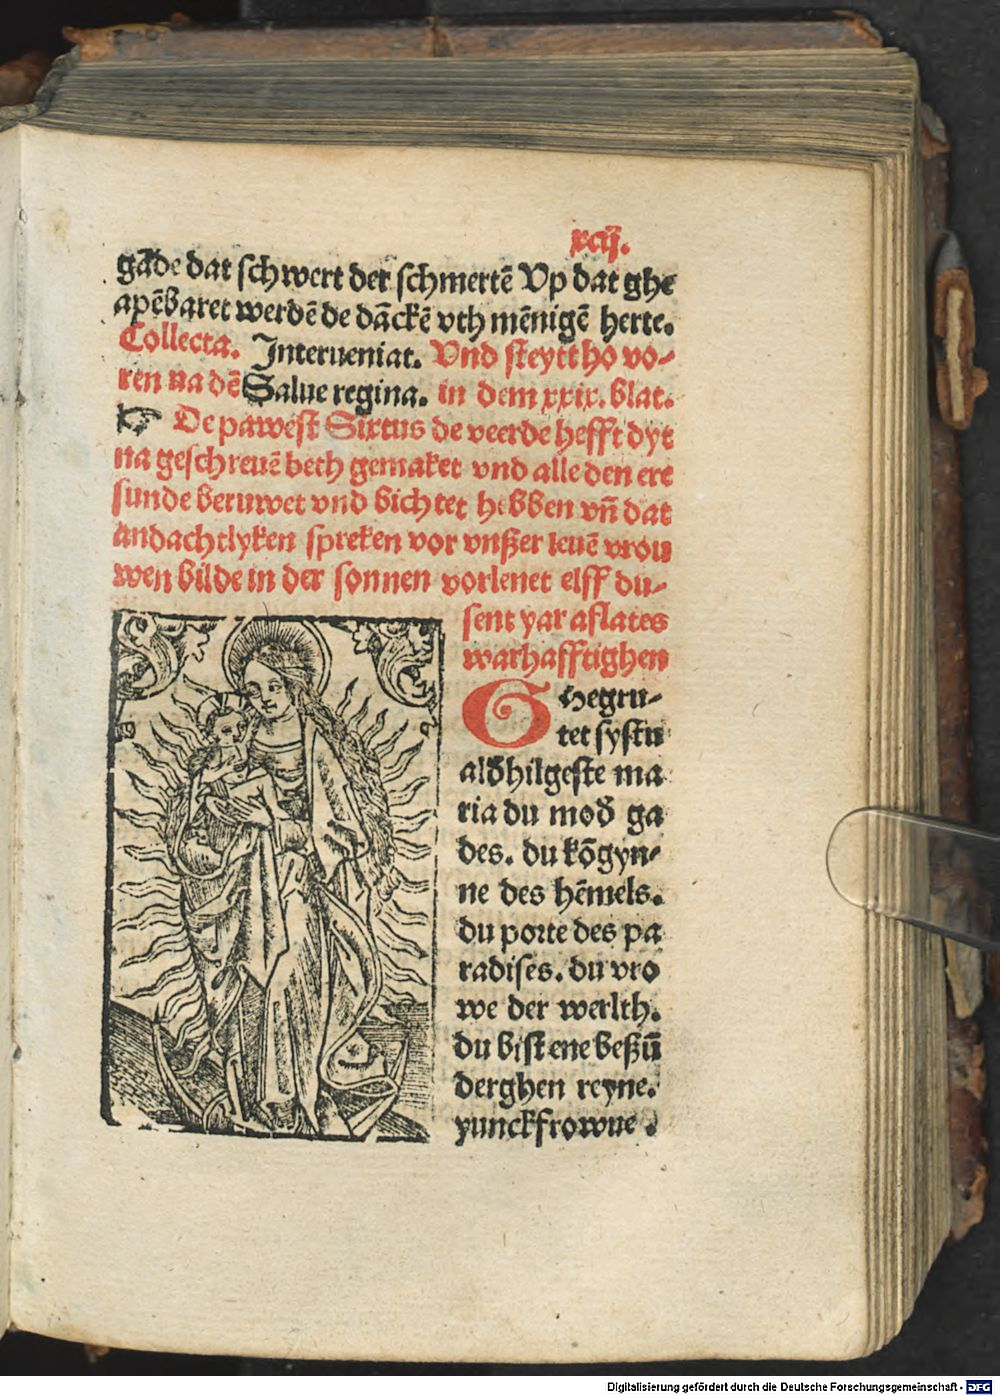 xcij.
gāde dat schwert der schmertē Vp dat ghe
apēbaret werdē de dāckē vth mēnigē herte.
Collecta. Interueniat. Vnd steytt ho vo-
ren na dē Salue regina. in dem xxix. blat.
☞ De pawest Sixtus de veerde hefft dyt
na geschreuē beth gemaket vnd alle den ere
sunde beruwet vnd bichtet hebben vn̄ dat
andachtlyken spreken vor vnßer leuē vrou
wen bilde in der sonnen vorlenet elff du-
sent yar aflates
warhafftighen
Ghegru-
tet systu
alđhilgeste ma
ria du mođ ga
des. du kōgyn-
ne des hēmels.
du porte des pa
radises. du vro
we der werlth.
du bist ene beßū
derghen reyne.
yunckfrowne.
Digitalisierung gefördert durch die Deutsche Forschungsgemeinschaft - DFG